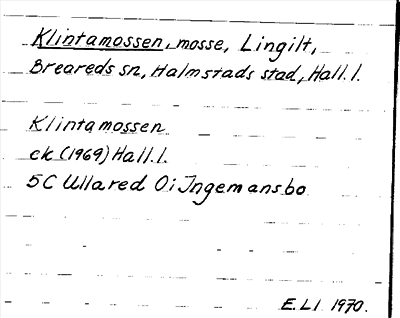 Klintamossen, mosse, Lingilt,
Breareds sn, Halmstads stad, Hall. l.
Klintamossen
ek (1969) Hall. l.
5C Ullared 0i Ingemansbo
E.L1 1970.